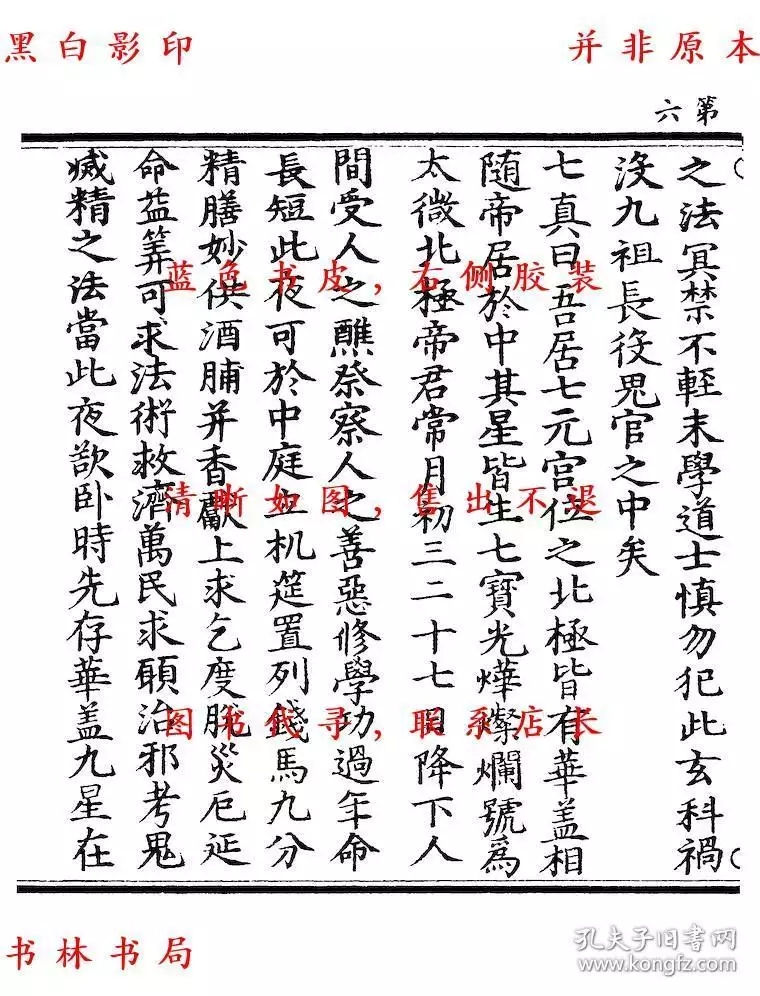 黑白影印
并非原本
第六
之法冥禁不輕末學道士慎勿犯此玄科禍
沒九祖長役鬼官之中矣
七真曰吾居七元宫位之北極皆有華盖相
隨帝居於中其星皆生七寶光燁燦爛號爲
太微北極帝君常月初三二十七日降下人
間受人之醮祭察人之善惡修學功過年命
長短此夜可於中庭立机筵置列錢馬九分
精膳妙供酒脯并香獻上求乞度脱災厄延
命益筭可求法術救濟萬民求願治邪考鬼
臧精之法當此夜欲卧時先存華盖九星在
蓝色书皮，右侧胶装
清晰如图，售出不退
图书代寻，联系店长
书林书局
孔夫子旧书网
www.kongfz.com